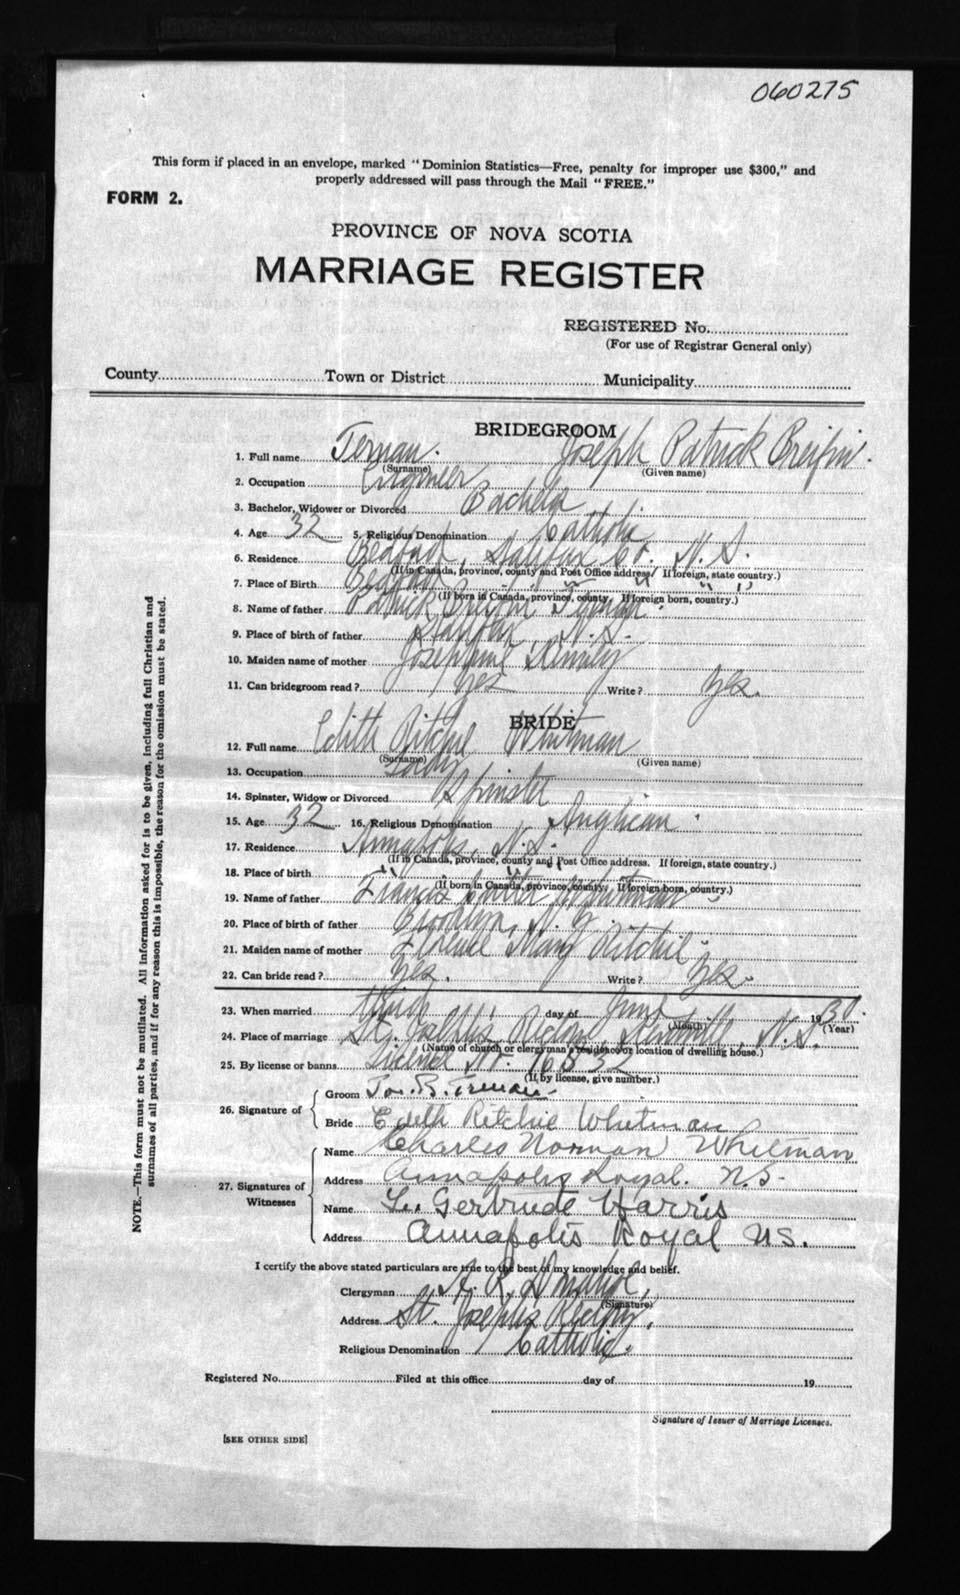 060275
This form if placed in an envelope, marked "Dominion Statistics—Free, penalty for improper use $300," and
properly addressed will pass through the Mail "FREE."
FORM 2.
PROVINCE OF NOVA SCOTIA
MARRIAGE REGISTER
REGISTERED No.
(For use of Registrar General only)
County Town or District Municipality
BRIDEGROOM
1. Full name Joseph Patrick
(Surname) (Given name)
2. Occupation Engineer
3. Bachelor, Widower or Divorced Bachelor
4. Age 32 5. Religious Denomination Catholic
6. Residence Bedford, Halifax Co. N.S.
(If in Canada, province, county and Post Office address. If foreign, state country.)
7. Place of Birth Bedford " " "
(If born in Canada, province, county, If foreign born, country.)
8. Name of father Patrick
9. Place of birth of father Halifax N.S.
10. Maiden name of mother Josephine
11. Can bridegroom read? Yes Write? Yes.
BRIDE
12. Full name Edith Ritchie Whitman
(Surname) (Given name)
13. Occupation Lady
14. Spinster, Widow or Divorced Spinster
15. Age 32 16. Religious Denomination Anglican
17. Residence Annapolis, N.S.
(If in Canada, province, county and Post Office address. If foreign, state country.)
18. Place of birth " " "
(If born in Canada, province, county, If foreign born, country.)
19. Name of father Francis Whitman
20. Place of birth of father Brooklyn, N.Y.
21. Maiden name of mother Florence Mary Ritchie
22. Can bride read? Yes. Write? Yes.
23. When married Third day of June 1930.
(Month) (Year)
24. Place of marriage St. Joseph's Rectory, Kentville, N.S.
(Name of church or clergyman's residence or location of dwelling house.)
25. By license or banns License No. 16532
(If by license, give number.)
26. Signature of
Groom Jos. B. Ternan
Bride Edith Ritchie Whitman
27. Signatures of Witnesses
Name Charles Norman Whitman
Address Annapolis Royal. N.S.
Name L. Gertrude Harris
Address Annapolis Royal NS.
I certify the above stated particulars are true to the best of my knowledge and belief.
Clergyman
(Signature)
Address St. Joseph's Rectory,
Religious Denomination Catholic.
Registered No. Filed at this office day of 19
Signature of Issuer of Marriage Licenses.
[SEE OTHER SIDE]
NOTE.—This form must not be mutilated. All information asked for is to be given, including full Christian and
surnames of all parties, and if for any reason this is impossible, the reason for the omission must be stated.